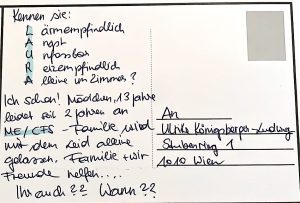 Kennen Sie:
L ärmempfindlich
A ngst
U nfassbar
R eizempfindlich
A lleine im Zimmer?
Ich schon! Mädchen, 13 Jahre
leidet seit 2 Jahren an
ME/CFS - Familie wird
mit dem Leid alleine
gelassen. Familie + wir
Freunde helfen....
Ihr auch?? Wann??
An
Ulrike Königsberger-Ludwig
Stubenring 1
1010 Wien